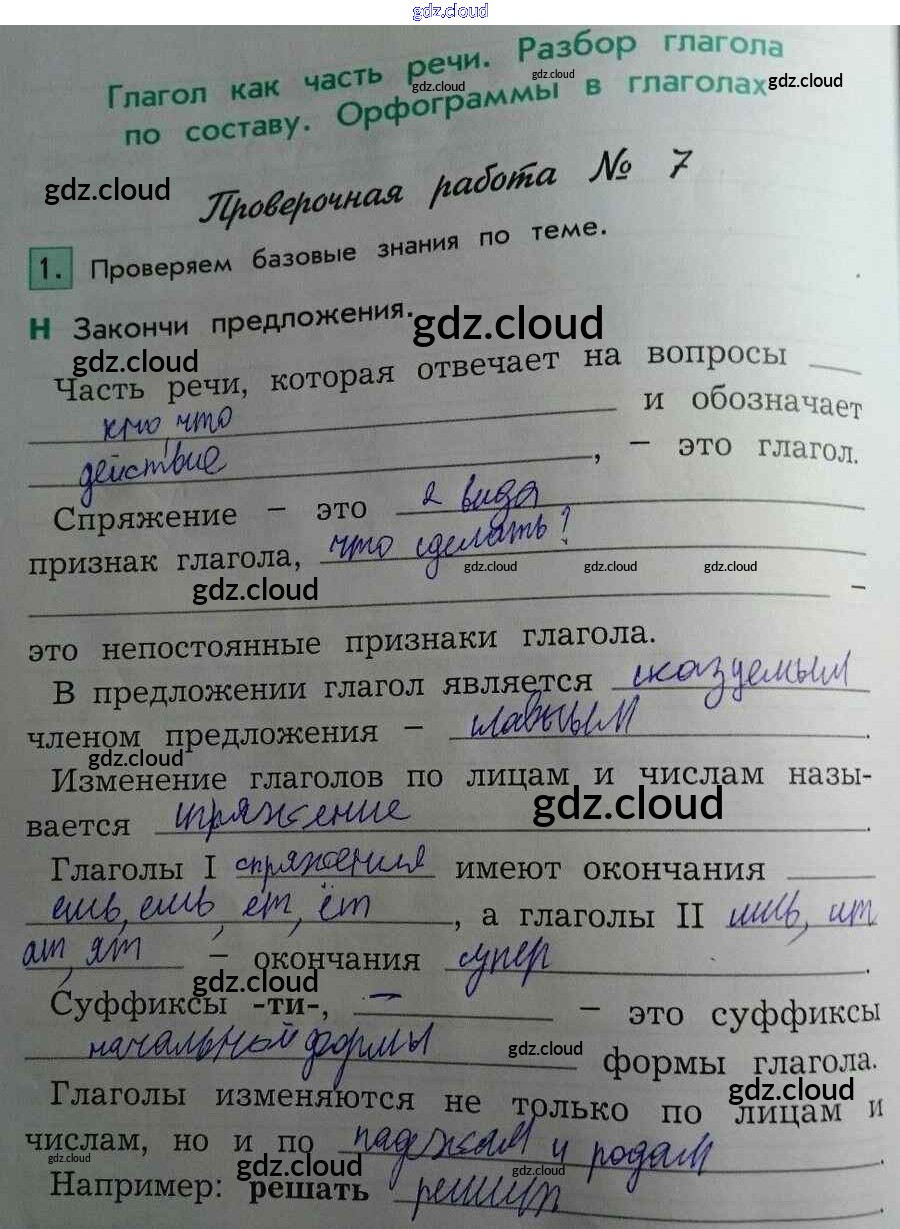 gdz.cloud
Глагол как часть речи. Разбор глагола
по составу. Орфограммы в глаголах
gdz.cloud gdz.cloud gdz.cloud
gdz.cloud
Проверочная работа № 7
1. Проверяем базовые знания по теме.
Н Закончи предложения.
gdz.cloud
gdz.cloud
Часть речи, которая отвечает на вопросы
кто что и обозначает
действие, – это глагол.
Спряжение – это 2 вида
признак глагола, что сделать?
gdz.cloud gdz.cloud gdz.cloud gdz.cloud
–
это непостоянные признаки глагола.
В предложении глагол является сказуемым
членом предложения – главным.
gdz.cloud
Изменение глаголов по лицам и числам назы-
gdz.cloud
вается спряжение.
Глаголы I спряжения имеют окончания
ешь, ешь, ет, ёт, а глаголы II ишь, ит
ат, ят – окончания супер.
gdz.cloud
Суффиксы -ти-, — – это суффиксы
начальной формы формы глагола.
gdz.cloud
Глаголы изменяются не только по лицам и
gdz.cloud
числам, но и по падежам и родам.
gdz.cloud gdz.cloud gdz.cloud
Например: решать решил.